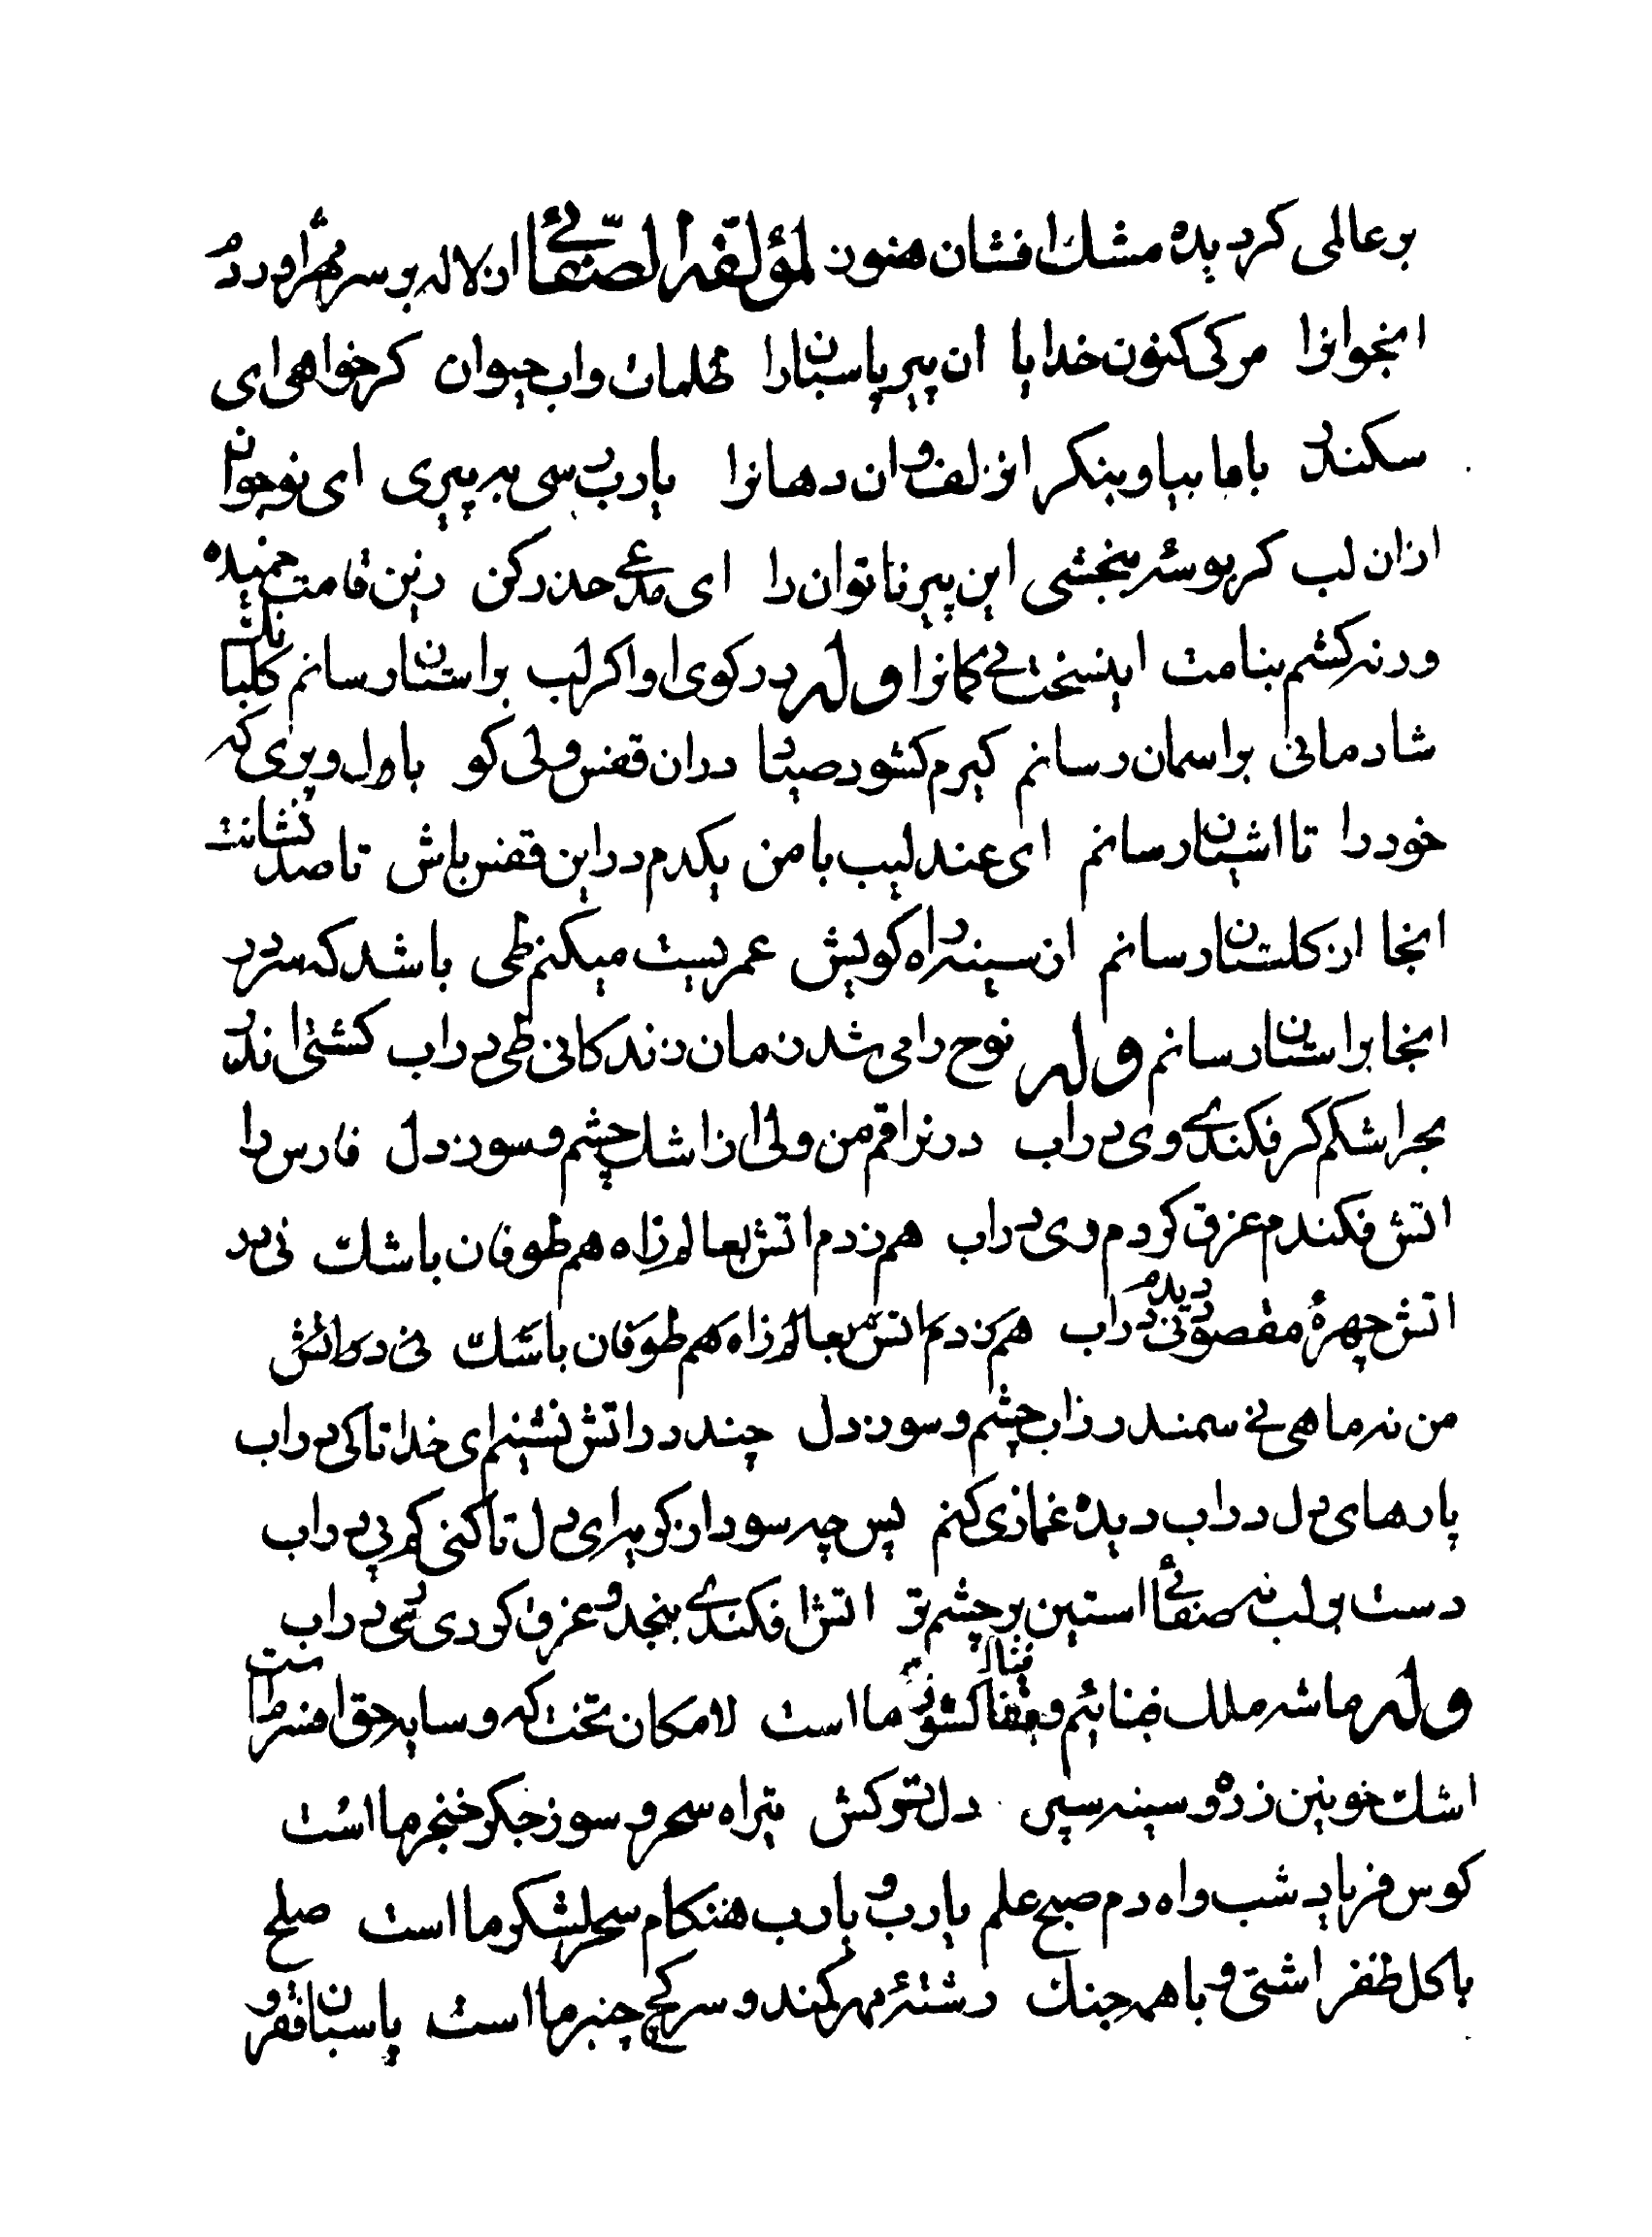 بر عالمی کردیده مشك افشان هنوز لمؤلفه الصّفائی از لاله بر سر مهر اورد
انجوانرا مرکی کنون خدایا ان پیر پاسبانرا ظلمات واب حیوان کر خواهی ای
سکندر باما بیا و بنکر انزلف و ان دهانرا یارب رسی به پیری ای نوجوان
ازان لب کر بوسهٔ ببخشی این پیر ناتوان را ای مدعی حذر کن زین قامت خمیده
ورنه کشم بنامت اینسخت پی کمانرا وله در کوی او اکر لب بر استان رسانم کلبانك
شادمانی بر اسمان رسانم کیرم کشود صیاد دران قفس ولی کو بال و پری که
خود را تا اشیان رسانم ای عندلیب با من یکدم در این قفس باش تا صد نشانت
انجا از کلستان رسانم از سینه راه کویش عمریست میکنم طی باشد که سر در
انجا بر استان رسانم وله نوح رامی شد زمان زندکانی طی در اب کشتی اندر
بحر اشکم کر فکندی وی در اب در نراقم من ولی از اشك چشم و سوز دل فارس را
اتش فکندم غرق کردم ری در اب هم زدم اتش بعالم زاه هم طوفان باشك نی در
اتش چهرهٔ مقصود دیدم نی در اب هم زدم اتش بعالم زاه هم طوفان باشك نی در اتش
من نه ماهی نی سمندر زاب چشم و سوز دل چند در اتش نشینم ای خدا تا کی در اب
پارهای دل در اب دیده غمازی کنم پس چه سود از کویه ای دل تا کنی کم پی در اب
دست بر لب نه صفائی استین بر چشم تر اتش افکندی بنجد و غرق کردی ری در اب
وله ما شه ملك فنائیم و بقا کشور ما است لامکان تختکه و سایه حق افسر ما است
اشك خونین زره و سینه سپر دل ترکش تیر اه سحر و سوز جکر خنجر ما است
کوس فریاد شب واه دم صبح علم یارب و یارب هنکام سحر لشکر ما است صلح
با کل ظفر اشتی و با همه جنك رشتهٔ مهر کمند و سر کج چنبر ما است پاسبان فقر و